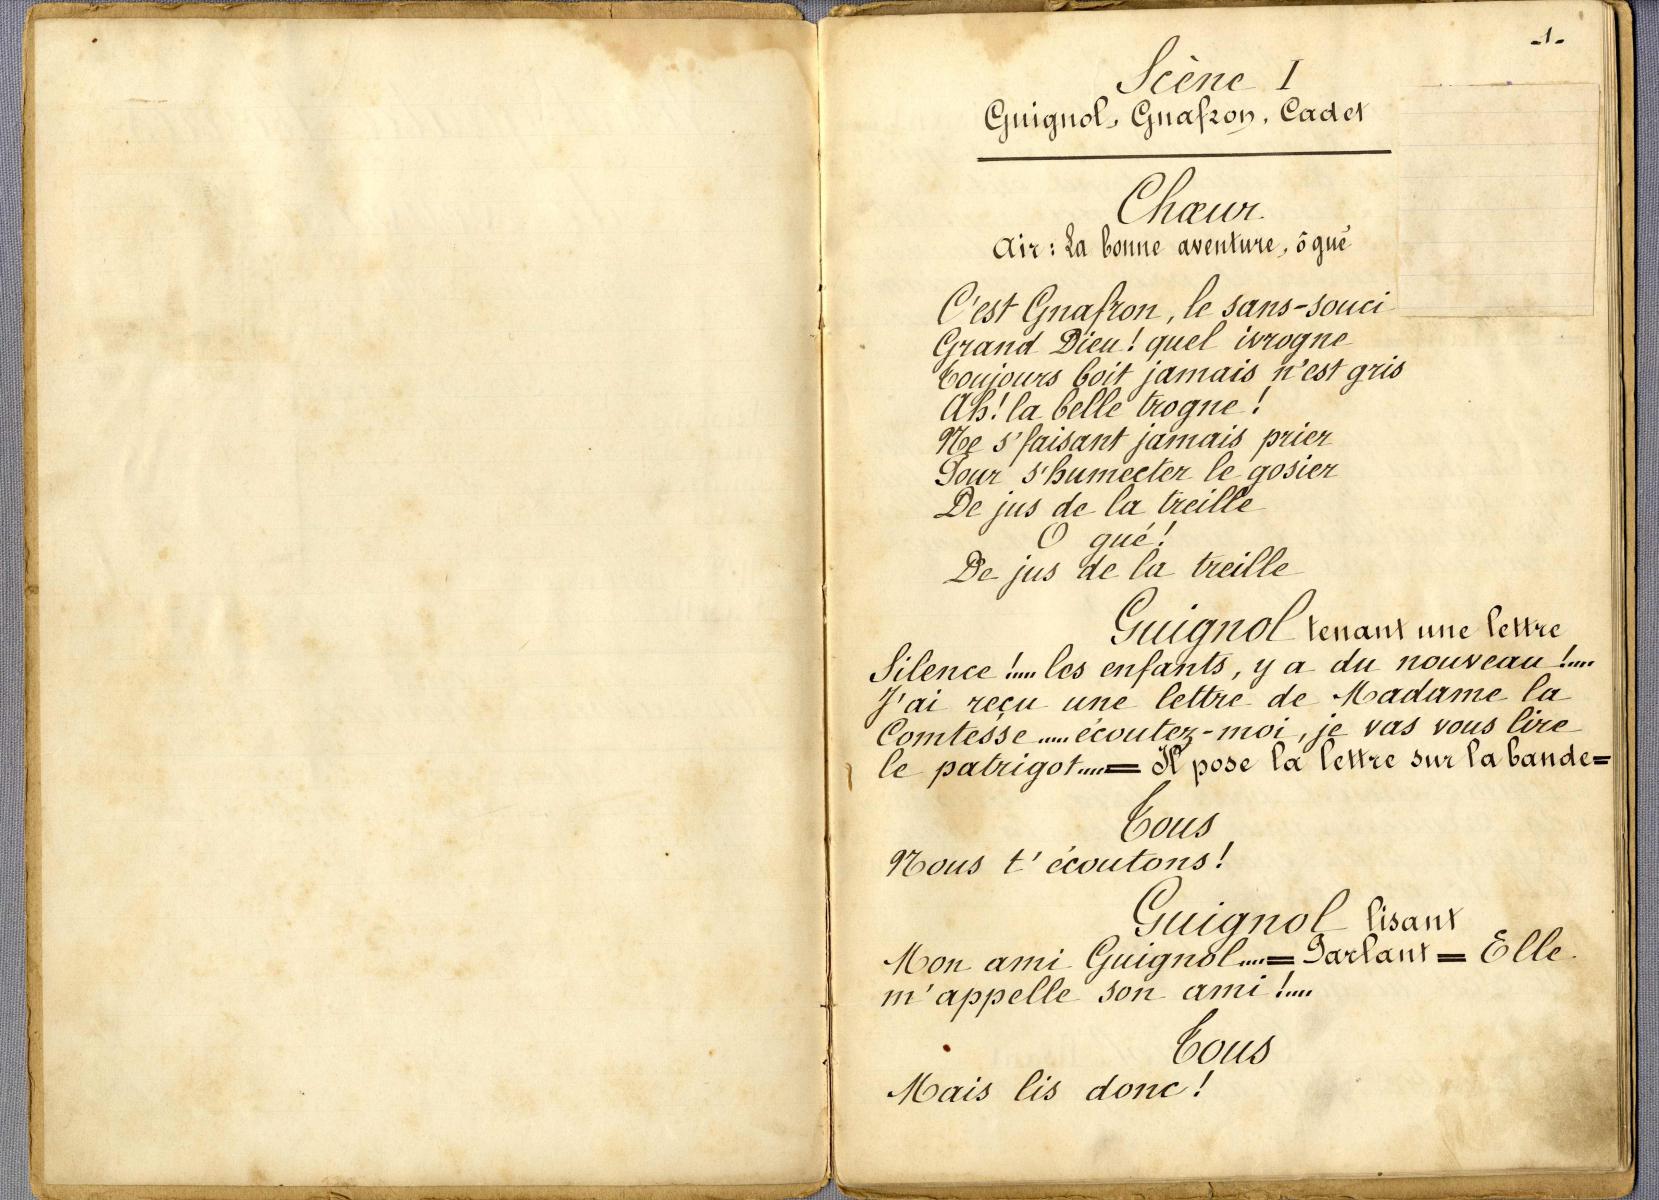 -1-
Scène I
Guignol, Gnafron, Cadet
Chœur.
Air : La bonne aventure, ô gué
C'est Gnafron, le sans-souci
Grand Dieu ! quel ivrogne
Toujours boit jamais n'est gris
Ah ! la belle trogne !
Ne s'faisant jamais prier
Pour s'humecter le gosier
De jus de la treille
O gué !
De jus de la treille
Guignol tenant une lettre
Silence !.... les enfants, y a du nouveau !....
J'ai reçu une lettre de Madame la
Comtesse .....écoutez-moi, je vas vous lire
le patrigot....= Il pose la lettre sur la bande=
Tous
Nous t'écoutons !
Guignol lisant
Mon ami Guignol....= Parlant = Elle
m'appelle son ami !....
Tous
Mais lis donc !